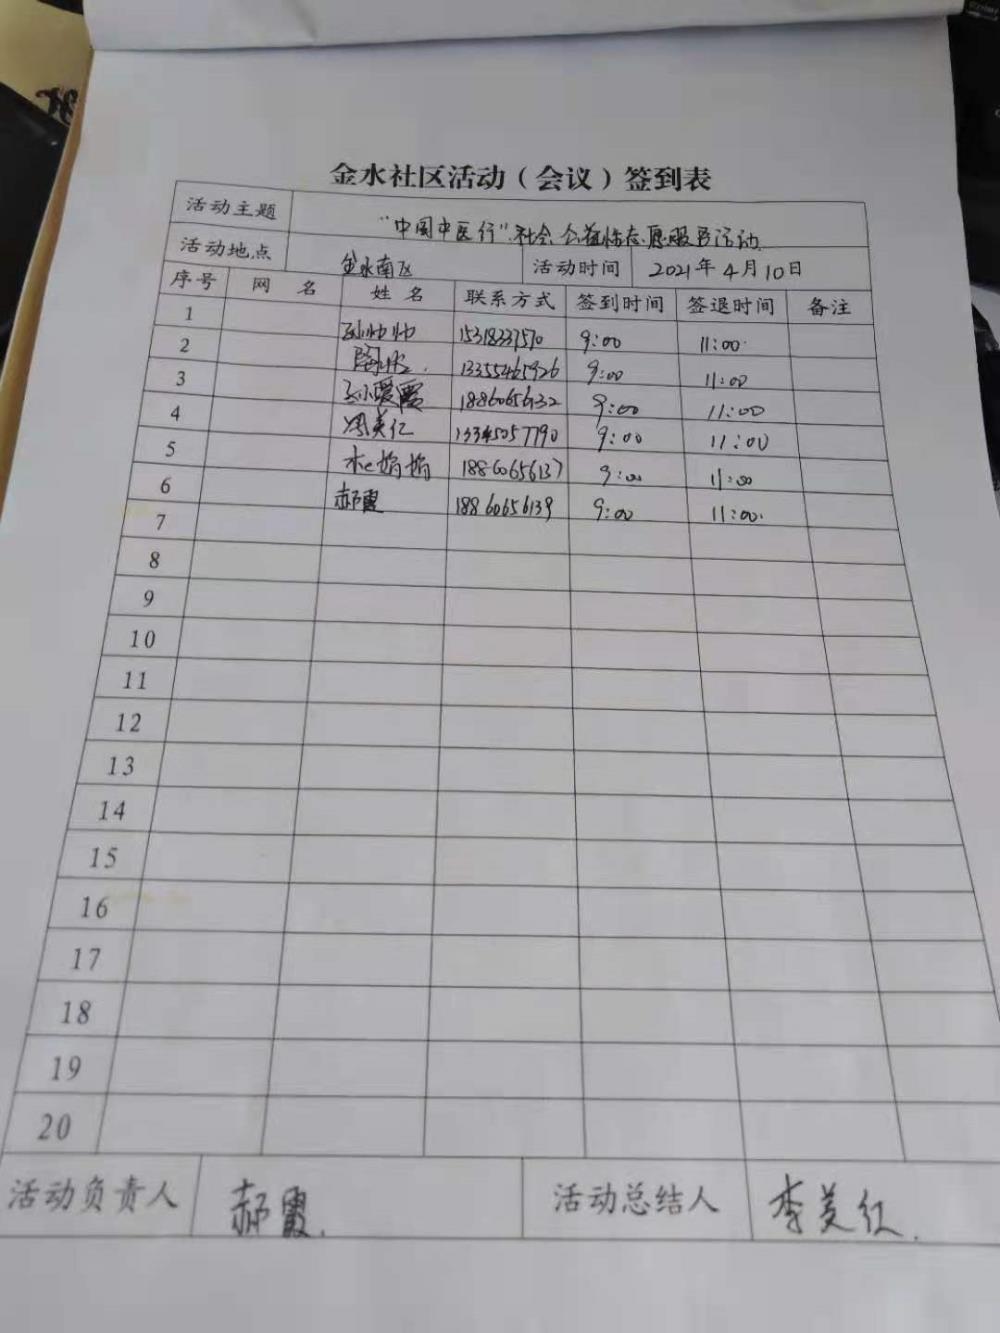 金水社区活动（会议）签到表
活动主题 "中国中医行"社会公益性志愿服务活动
活动地点 金水南区 活动时间 2021年4月10日
序号 网 名 姓 名 联系方式 签到时间 签退时间 备注
1 孙帅帅 15318337570 9:00 11:00
2 13355465926 9:00 11:00
3 18860656132 9:00 11:00
4 13345057790 9:00 11:00
5 18860656137 9:00 11:00
6 郝霞 18860656139 9:00 11:00
7
8
9
10
11
12
13
14
15
16
17
18
19
20
活动负责人 郝霞. 活动总结人 李美红.